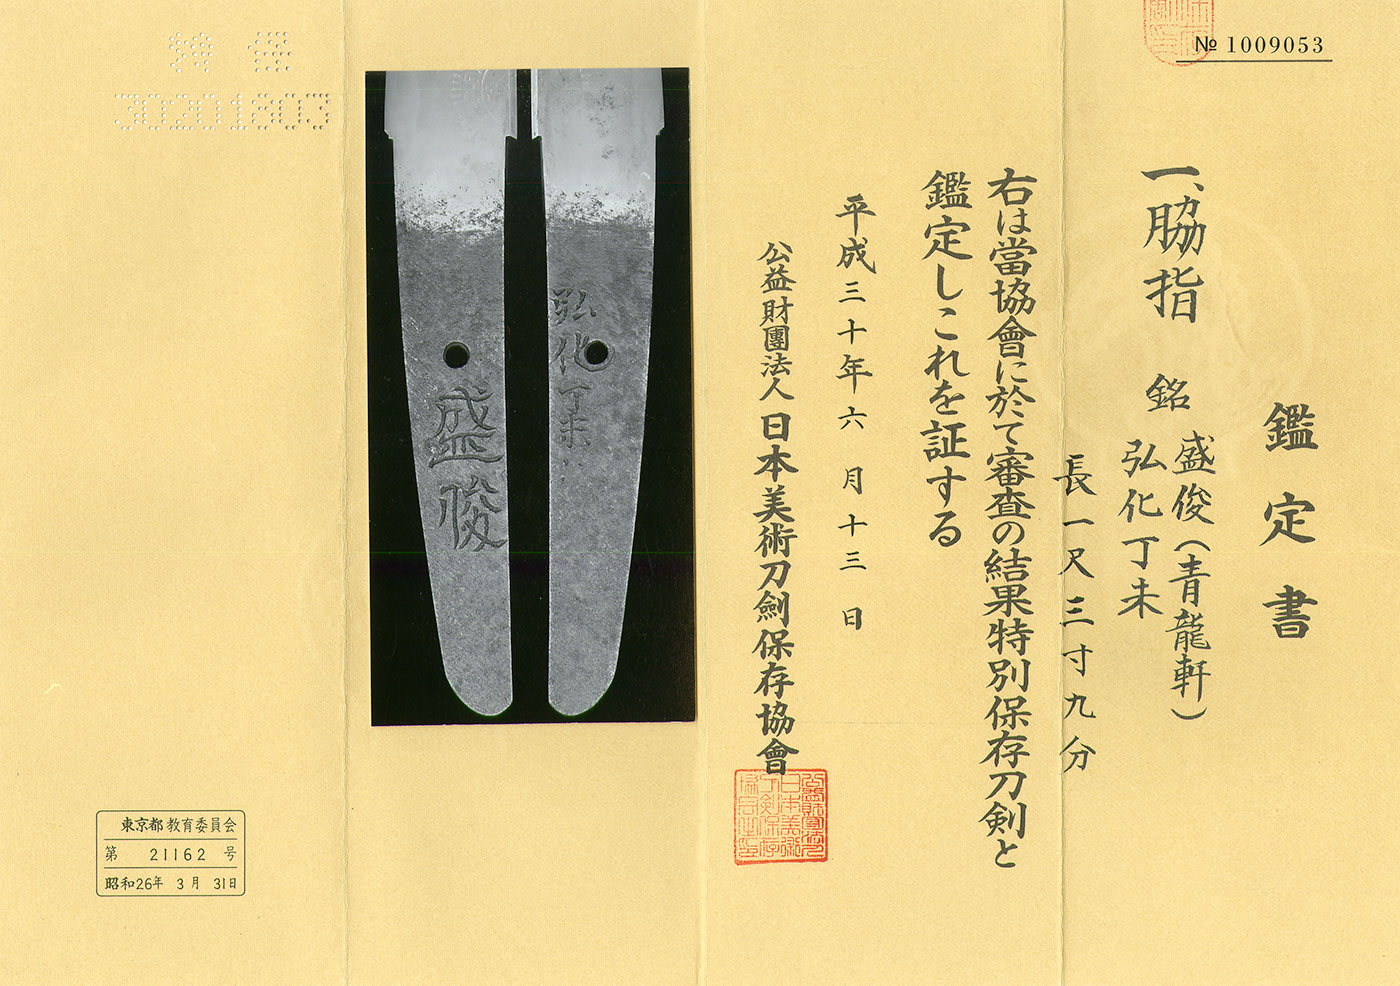 № 1009053
鑑定書
一、脇指 銘 盛俊(青龍軒)
弘化丁未
長一尺三寸九分
右は當協會に於て審査の結果特別保存刀剣と
鑑定しこれを証する
平成三十年六月十三日
公益財團法人 日本美術刀劍保存協會
弘化丁未
盛俊
30201603
東京都教育委員会
第 21162 号
昭和26年 3月 31日